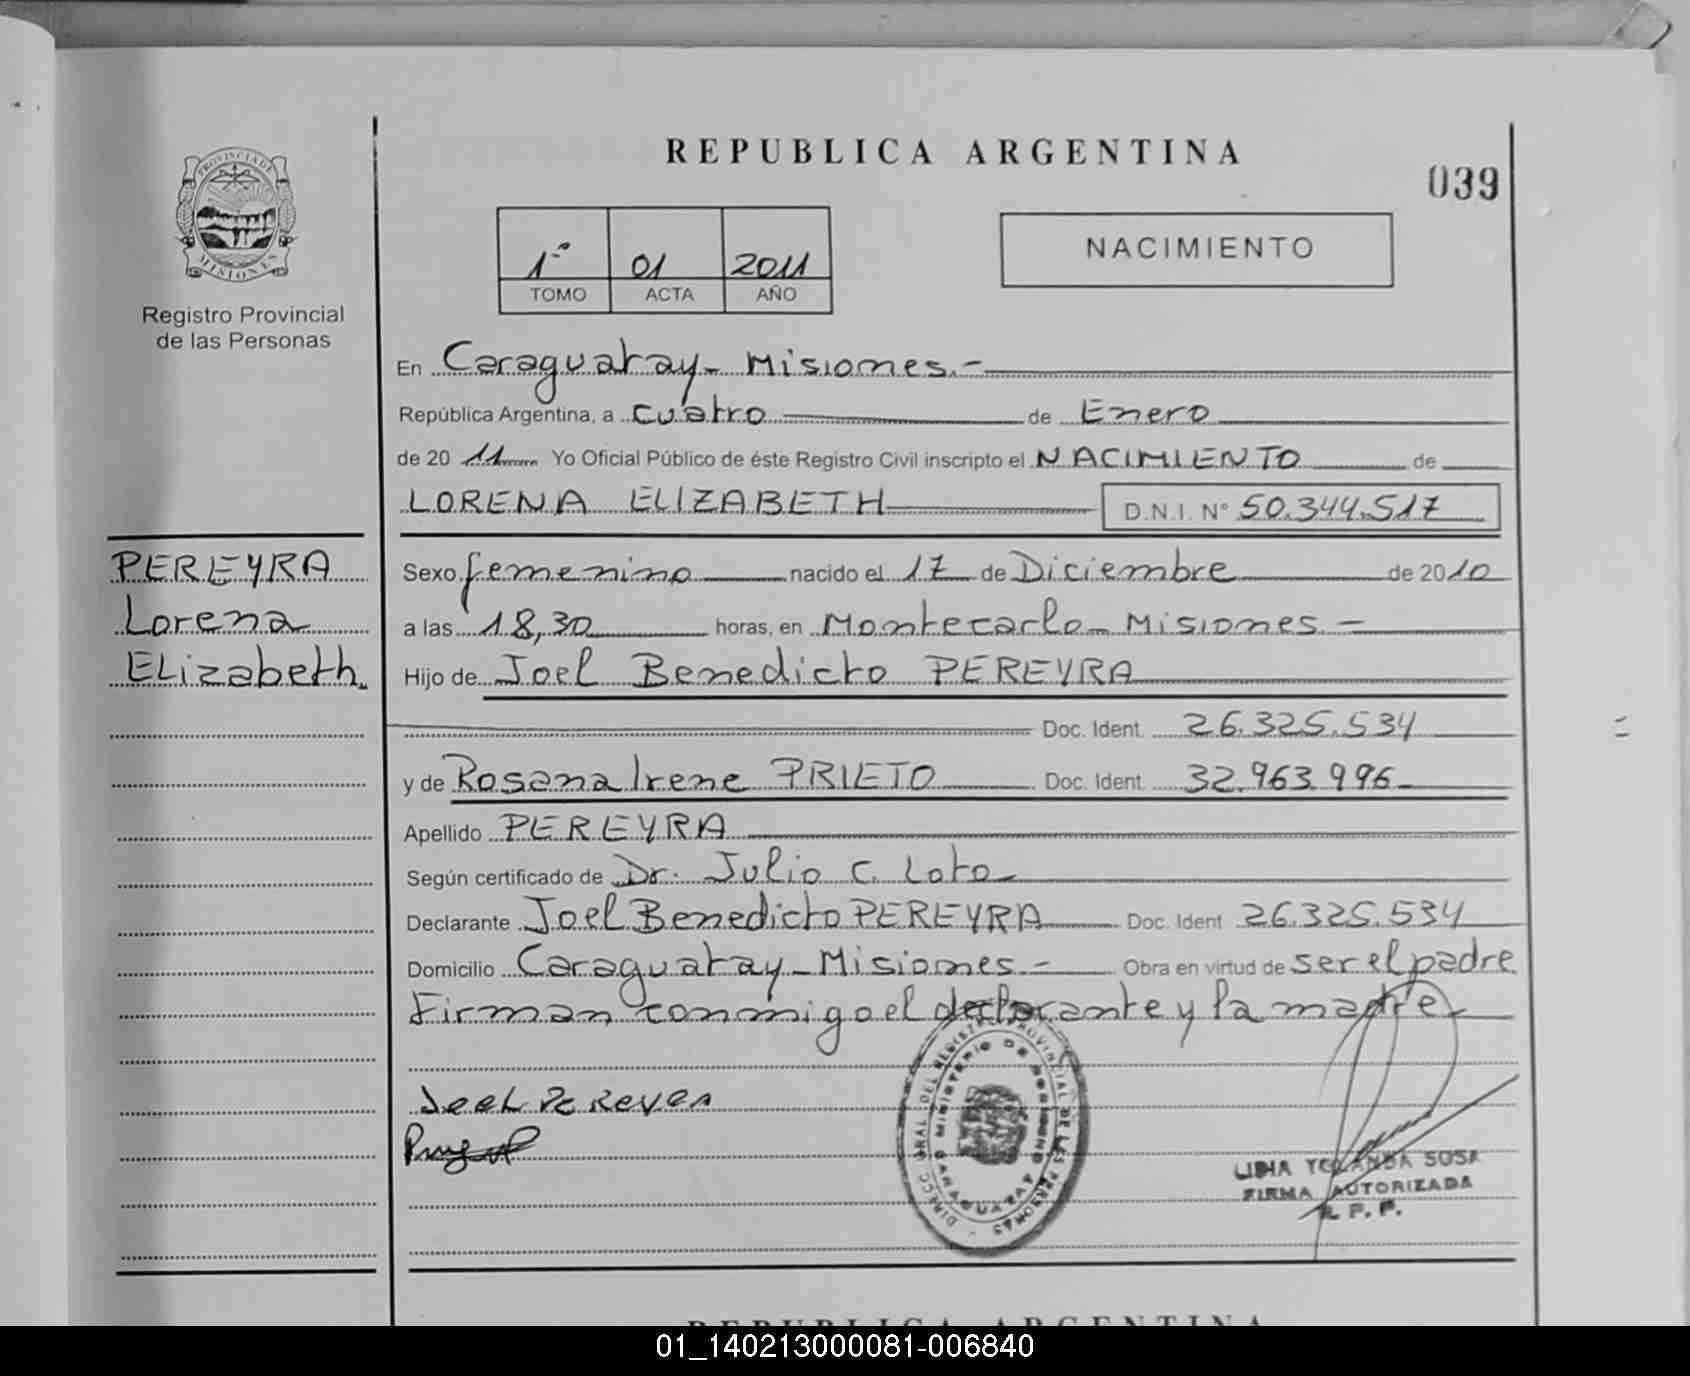 REPUBLICA ARGENTINA
039
PROVINCIA DE MISIONES
Registro Provincial
de las Personas
1º 01 2011
TOMO ACTA AÑO
NACIMIENTO
En Caraguatay - Misiones.-
República Argentina, a cuatro de Enero
de 20 11 Yo Oficial Público de éste Registro Civil inscripto el NACIMIENTO de
LORENA ELIZABETH D.N.I. Nº 50.344.517
PEREYRA
Lorena
ELizabeth.
Sexo femenino nacido el 17 de Diciembre de 2010
a las 18,30 horas, en Montecarlo - Misiones.-
Hijo de Joel Benedicto PEREYRA
Doc. Ident. 26.325.534
y de Rosana Irene PRIETO Doc. Ident. 32.963.996
Apellido PEREYRA
Según certificado de Dr. Julio C. Loto
Declarante Joel Benedicto PEREYRA Doc. Ident 26.325.534
Domicilio Caraguatay - Misiones.- Obra en virtud de ser el padre
Firman conmigo el declarante y la madre
JoeL PeReyRA
LIDIA YOLANDA SOSA
FIRMA AUTORIZADA
R. P. P.
REPUBLICA ARGENTINA
01_140213000081-006840